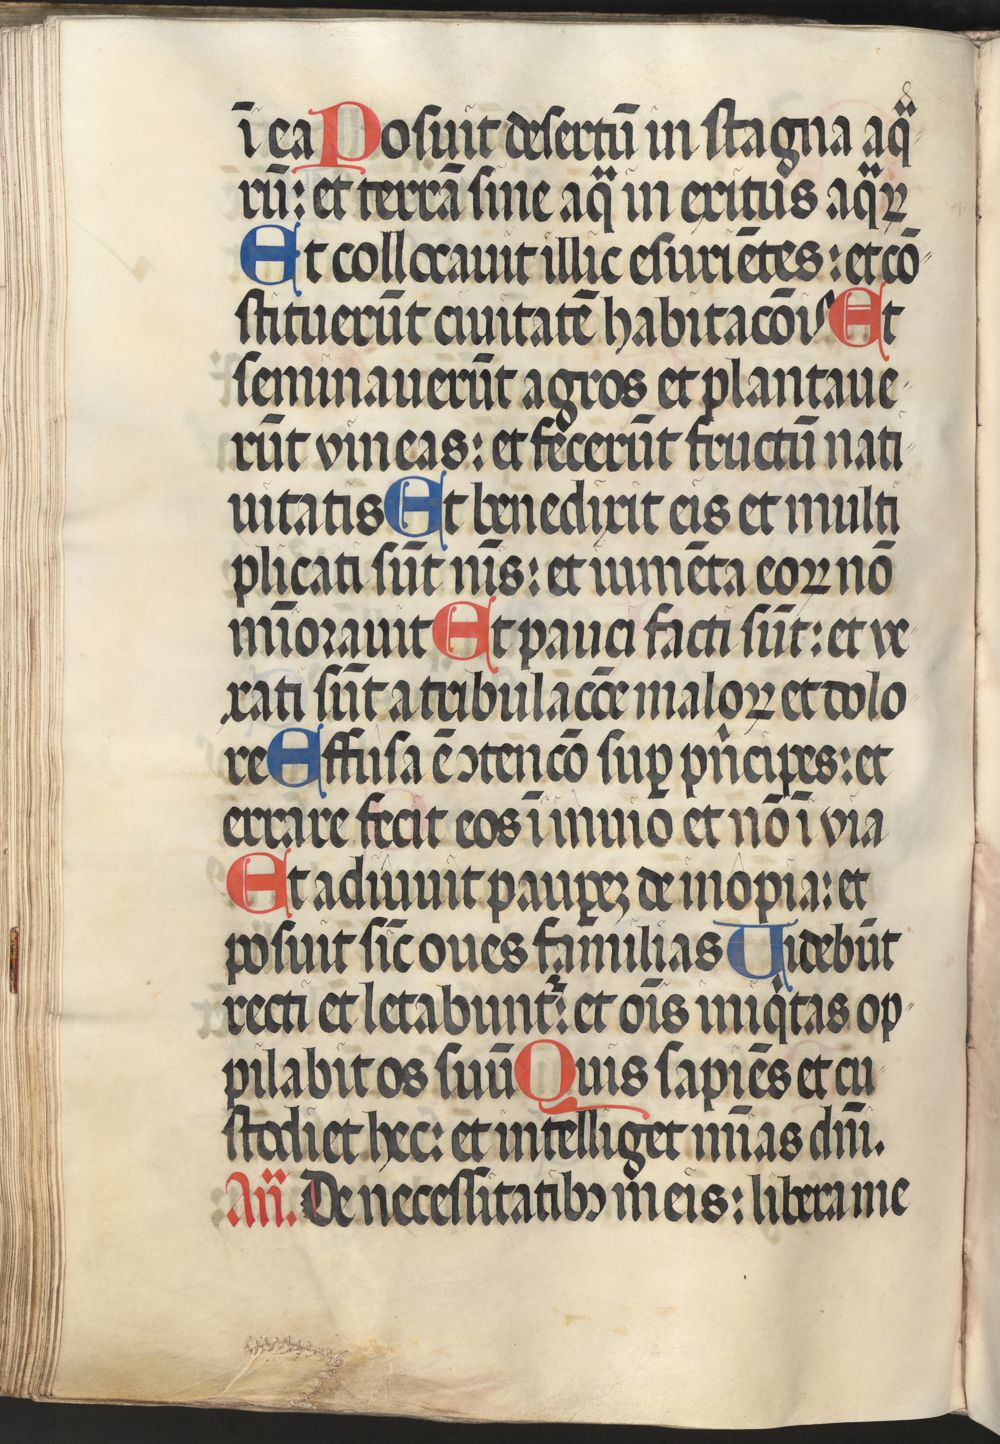 ī ea Posuit desertū in stagna aq̈
rū: et terrā sine aq̈ in exitus aq̈ꝝ
Et collocauit illic esuriētes: et cō
stituerūt ciuitatē habitacōis Et
seminauerūt agros et plantaue
rūt vineas: et fecerūt fructū nati
uitatis Et benedixit eis et multi
plicati sūt nīs: et iumēta eoꝝ nō
mīorauit Et pauci facti sūt: et ve
xati sūt a tribulacōe maloꝝ et dolo
re Effusa ē ꝯtencō suꝑ pͥncipes: et
errare fecit eos ī inuio et nō ī via
Et adiuuit pauꝑeꝫ de inopia: et
posuit sīc oues familias Uidebūt
recti et letabunt᷑: et oīs iniqͥtas op
pilabit os suū Quis sapiēs et cu
stodiet hec: et intelliget mīas dn̄i.
An̄. De necessitatibꝯ meis: libera me